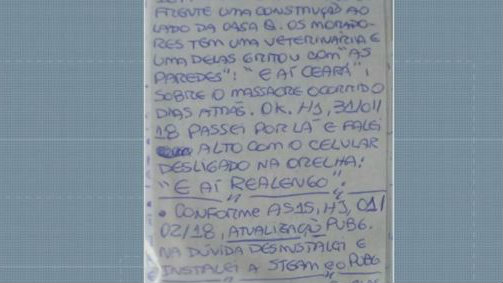 FRENTE UMA CONSTRUÇÃO AO
LADO DA CASA 8. OS MORADO-
RES TEM UMA VETERINÁRIA E
UMA DELAS GRITOU COM "AS
PAREDES": "E AÍ CEARÁ",
SOBRE O MASSACRE OCORRIDO
DIAS ATRÁS. OK. HJ, 31/01/
18 PASSEI POR LÁ E FALEI
ALTO COM O CELULAR
DESLIGADO NA ORELHA:
"E AÍ REALENGO".
• CONFORME AS 15, HJ, 01/
02/18, ATUALIZAÇÃO PUBG.
NA DÚVIDA DESINSTALEI E
INSTALEI A STEAM E O PUBG